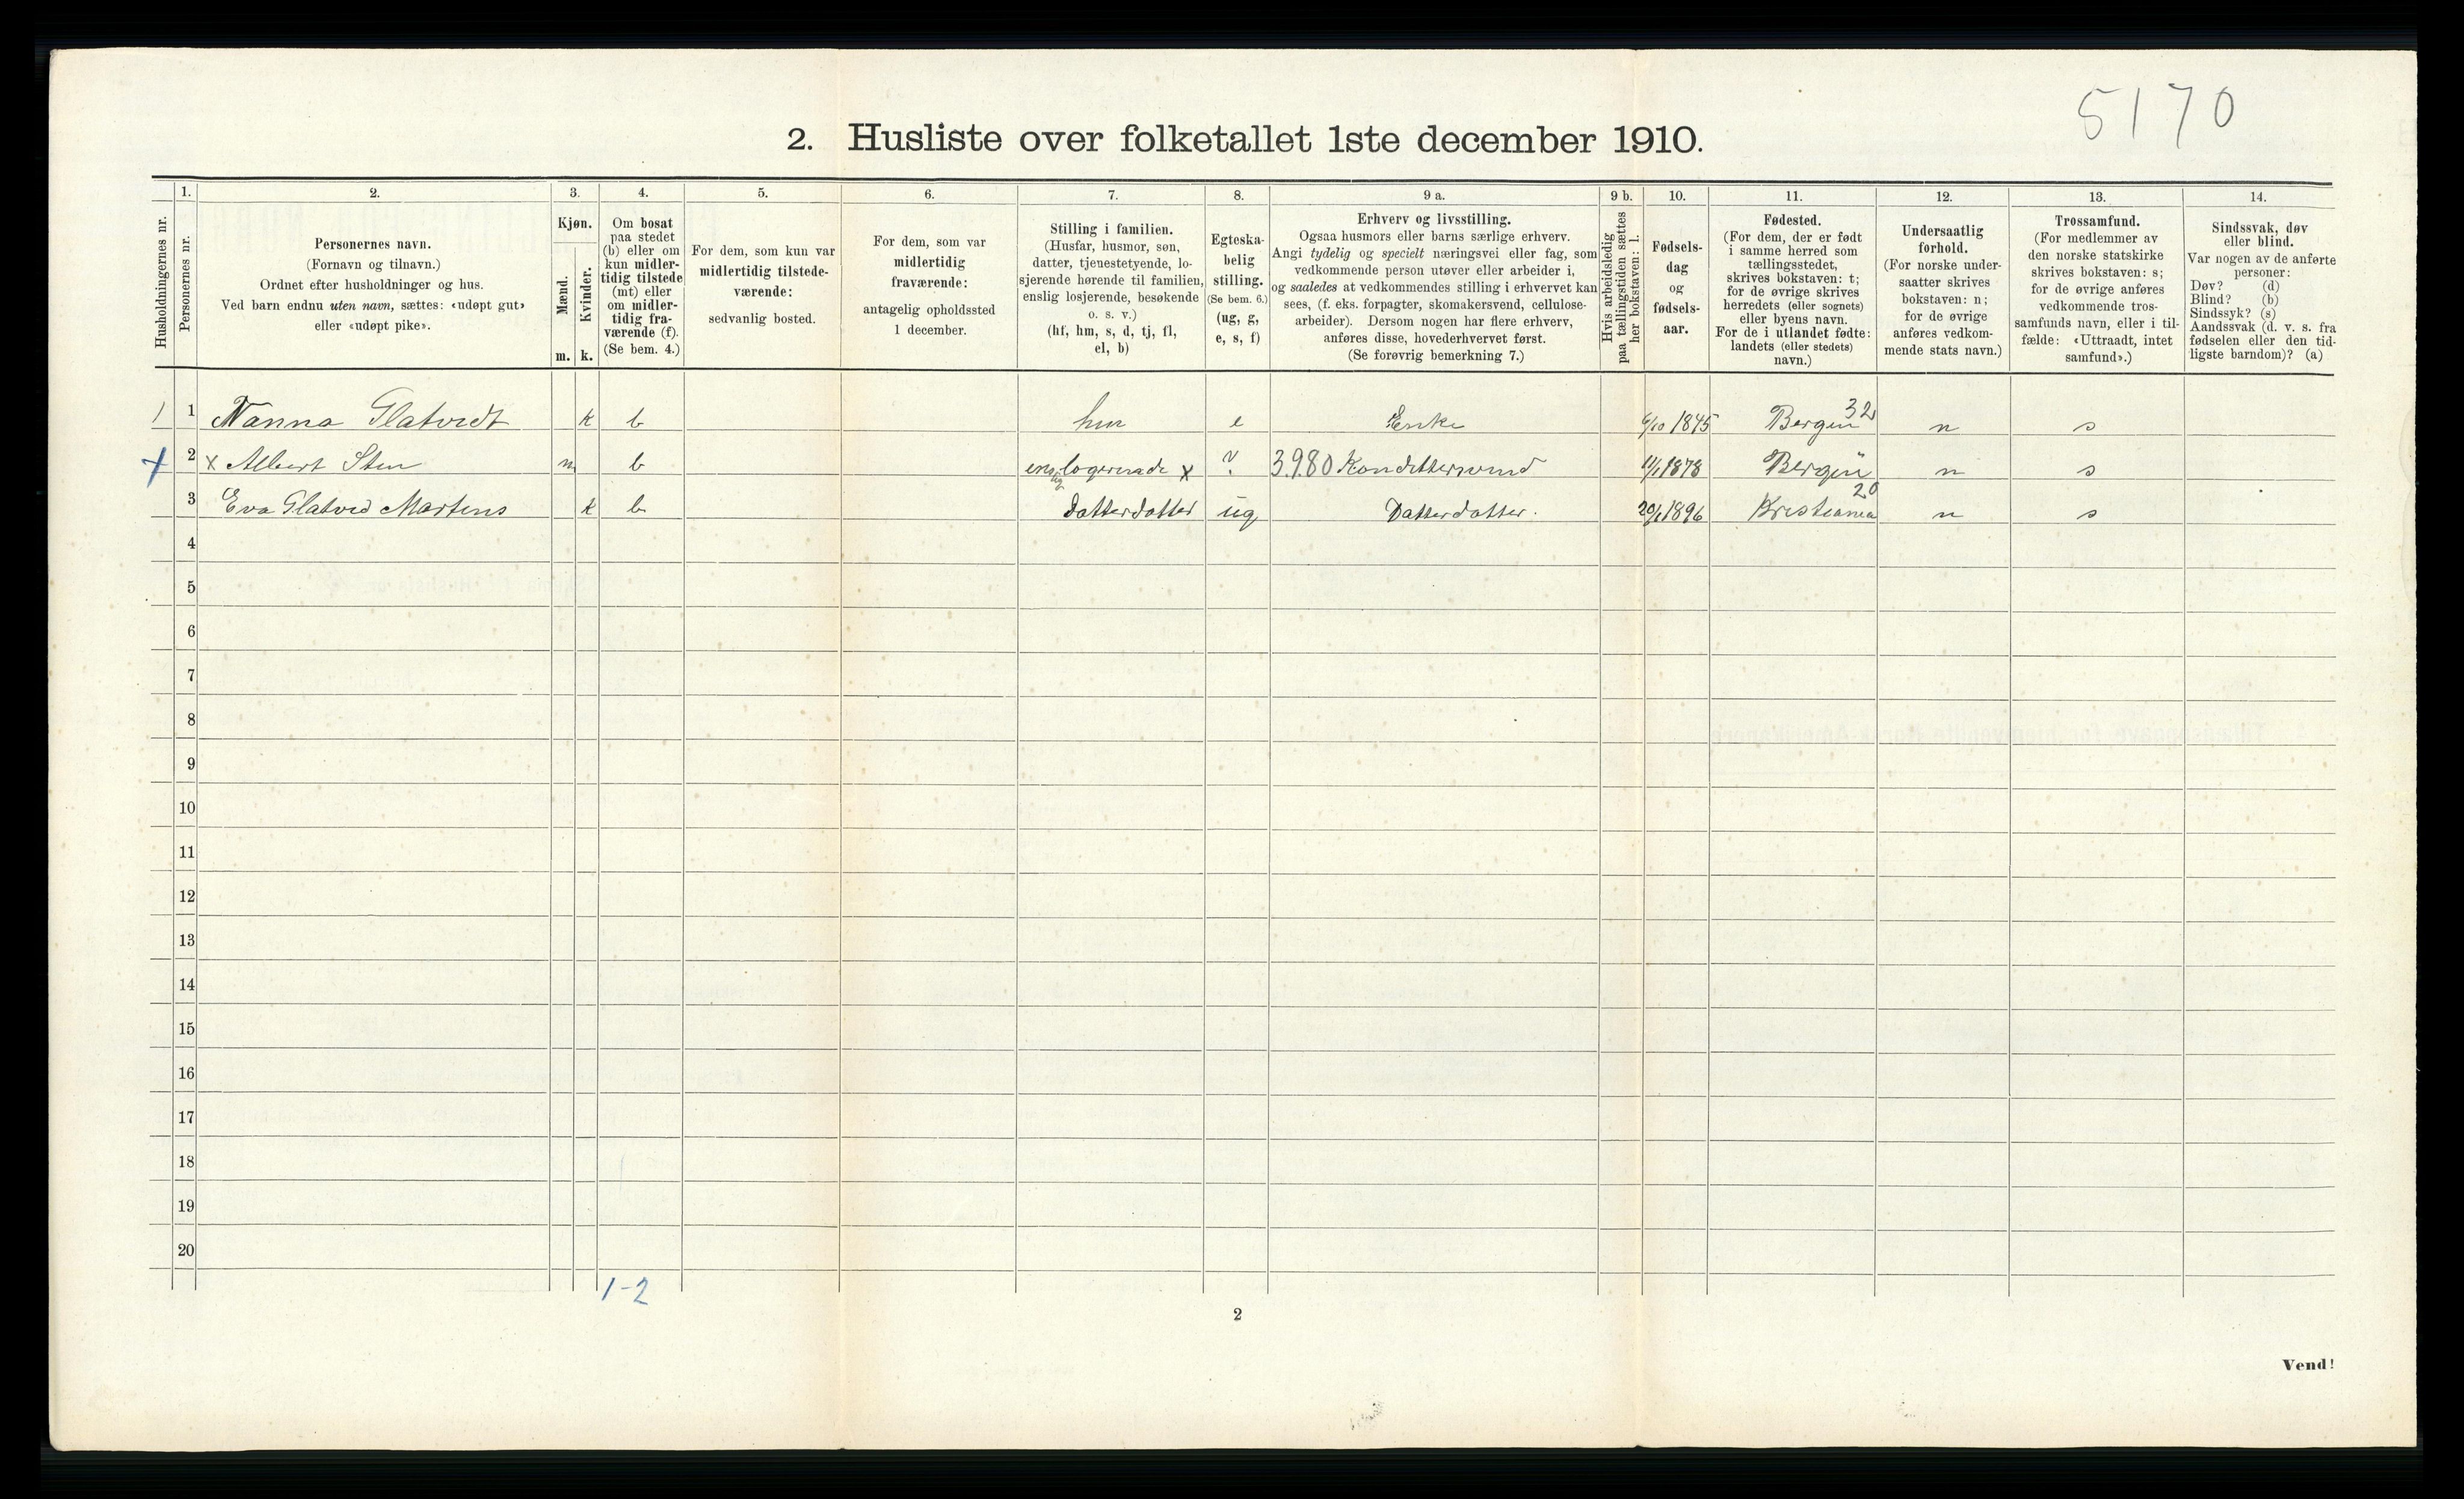 5170
2. Husliste over folketallet 1ste december 1910.
Husholdningernes nr.
1.
Personernes nr.
2.
Personernes navn.
(Fornavn og tilnavn.)
Ordnet efter husholdninger og hus.
Ved barn endnu uten navn, sættes: «udøpt gut»
eller «udøpt pike».
3.
Kjøn.
Mænd.
Kvinder.
m. k.
4.
Om bosat
paa stedet
(b) eller om
kun midler-
tidig tilstede
(mt) eller
om midler-
tidig fra-
værende (f).
(Se bem. 4.)
5.
For dem, som kun var
midlertidig tilstede-
værende:
sedvanlig bosted.
6.
For dem, som var
midlertidig
fraværende:
antagelig opholdssted
1 december.
7.
Stilling i familien.
(Husfar, husmor, søn,
datter, tjenestetyende, lo-
sjerende hørende til familien,
enslig losjerende, besøkende
o. s. v.)
(hf, hm, s, d, tj, fl,
el, b)
8.
Egteska-
belig
stilling.
(Se bem. 6.)
(ug, g,
e, s, f)
9 a.
Erhverv og livsstilling.
Ogsaa husmors eller barns særlige erhverv.
Angi tydelig og specielt næringsvei eller fag, som
vedkommende person utøver eller arbeider i,
og saaledes at vedkommendes stilling i erhvervet kan
sees, (f. eks. forpagter, skomakersvend, cellulose-
arbeider). Dersom nogen har flere erhverv,
anføres disse, hovederhvervet først.
(Se forøvrig bemerkning 7.)
9 b.
Hvis arbeidsledig
paa tællingstiden sættes
her bokstaven: l.
10.
Fødsels-
dag
og
fødsels-
aar.
11.
Fødested.
(For dem, der er født
i samme herred som
tællingsstedet,
skrives bokstaven: t;
for de øvrige skrives
herredets (eller sognets)
eller byens navn.
For de i utlandet fødte:
landets (eller stedets)
navn.)
12.
Undersaatlig
forhold.
(For norske under-
saatter skrives
bokstaven: n;
for de øvrige
anføres vedkom-
mende stats navn.)
13.
Trossamfund.
(For medlemmer av
den norske statskirke
skrives bokstaven: s;
for de øvrige anføres
vedkommende tros-
samfunds navn, eller i til-
fælde: «Uttraadt, intet
samfund».)
14.
Sindssvak, døv
eller blind.
Var nogen av de anførte
personer:
Døv? (d)
Blind? (b)
Sindssyk? (s)
Aandssvak (d. v. s. fra
fødselen eller den tid-
ligste barndom)? (a)
1 1 Nanna Glatvedt k b hm e Enke 6/10 1845 Bergen 32 n s
+ 2 x Albert Sten m b enslig logerende x ? 3.980 Kondittersvend 11/1 1878 Bergen n s
3 Eva Glatved Martens k b Datterdatter ug Datterdatter. 20/1 1896 Kristiania 20 n s
4
5
6
7
8
9
10
11
12
13
14
15
16
17
18
19
20
1-2
2
Vend!